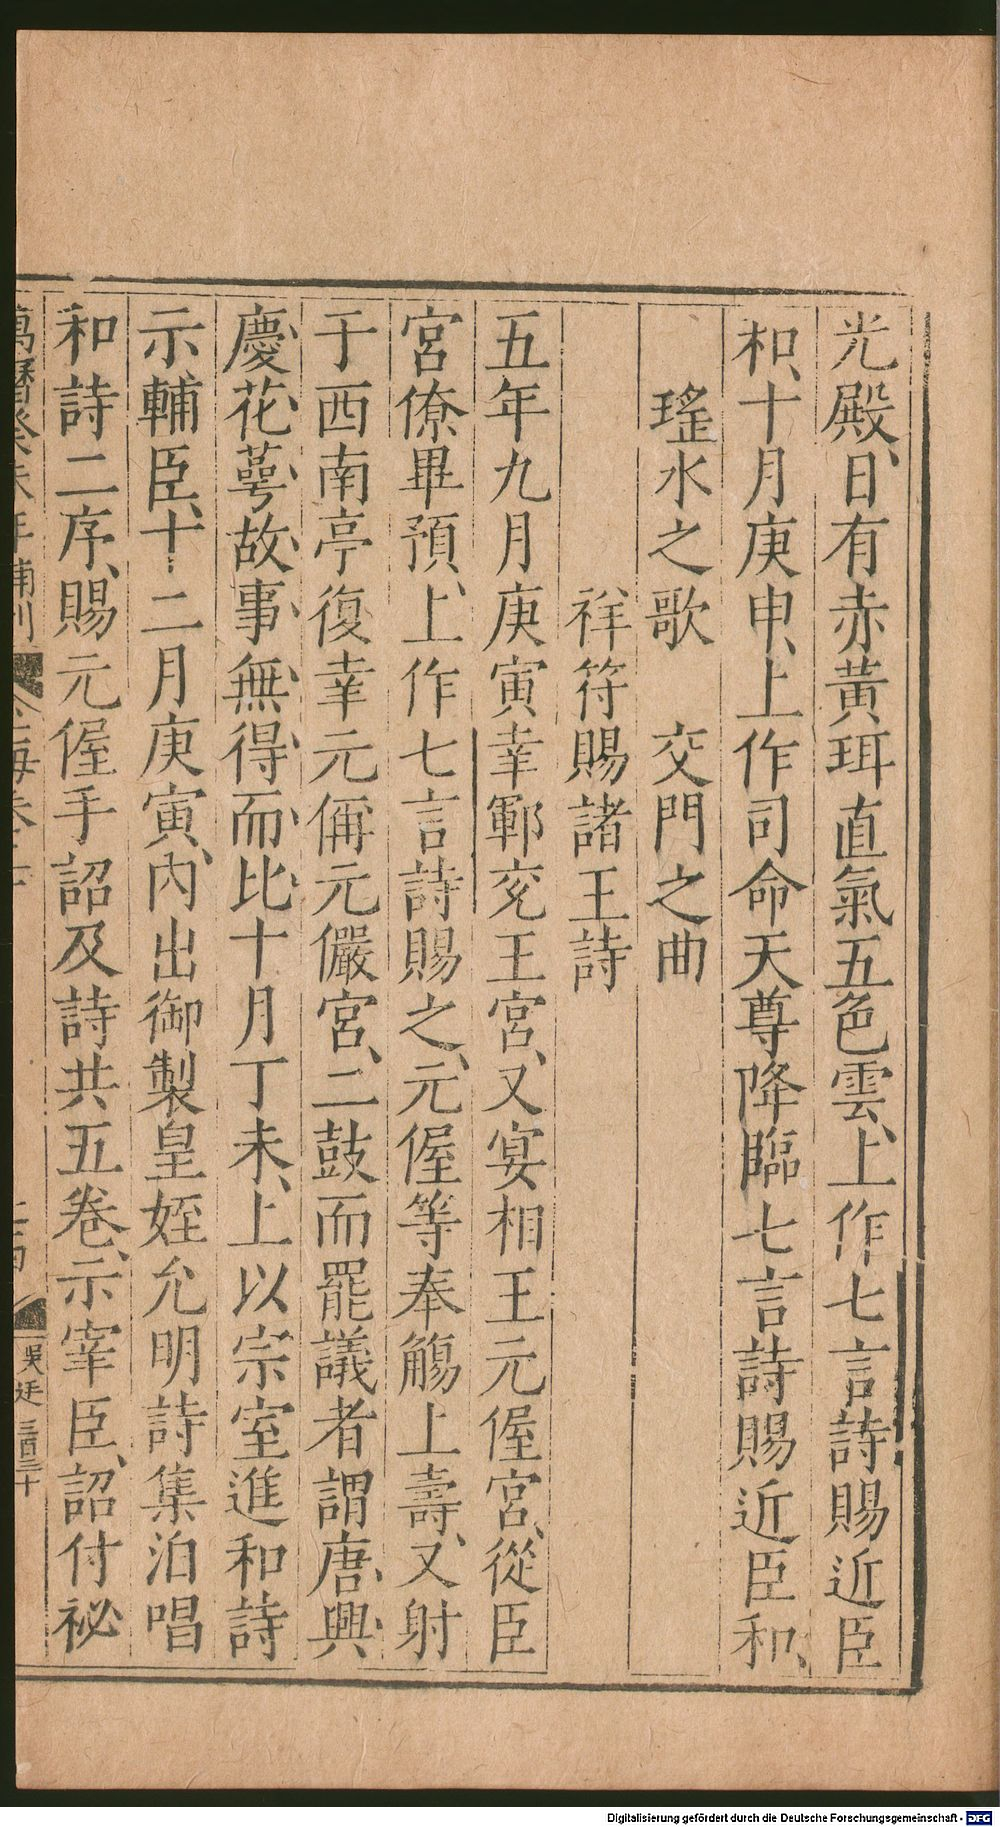 光殿、日有赤黃珥直氣五色雲、上作七言詩賜近臣
和、十月庚申、上作司命天尊降臨七言詩賜近臣和、
瑤水之歌　交門之曲
祥符賜諸王詩
五年九月庚寅幸鄆兗王宮、又宴相王元偓宮、從臣
宮僚畢預、上作七言詩賜之、元偓等奉觴上壽、又射
于西南亭復幸元偁元儼宮、二鼓而罷議者謂唐興
慶花萼故事無得而比十月丁未、上以宗室進和詩
示輔臣、十二月庚寅、內出御製皇姪允明詩集洎唱
和詩二序、賜元偓手詔及詩共五卷、示宰臣、詔付祕
萬曆癸未年補刊
玉海卷
吳廷 三百三十
Digitalisierung gefördert durch die Deutsche Forschungsgemeinschaft - DFG